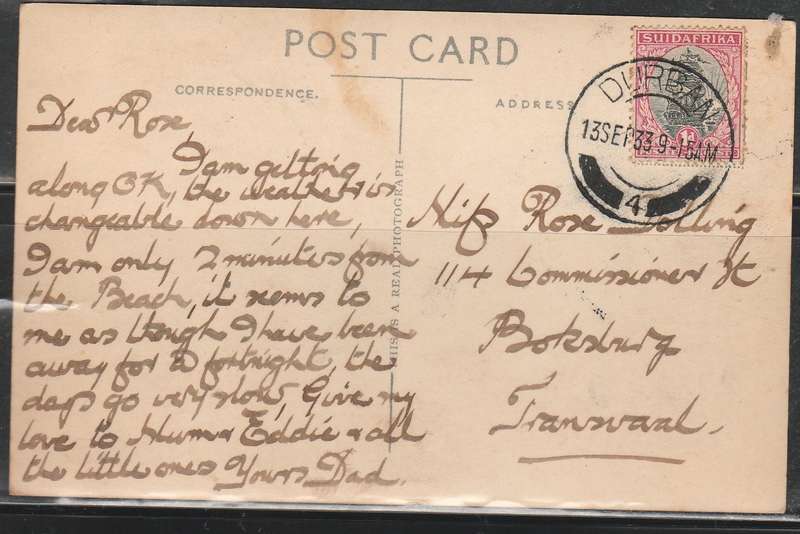 POST CARD
CORRESPONDENCE.
ADDRESS
SUIDAFRIKA
1d
DURBAN
13SEP33 9-15AM
4
THIS IS A REAL PHOTOGRAPH
Dear Rose,
I am getting
along OK, the weather is
changeable down here,
I am only 2 minutes from
the Beach, it seems to
me as though I have been
away for a fortnight, the
days go very slow, Give my
love to Mum & Eddie & all
the little ones Yours Dad.
Miss Rose Dolling
114 Commissioner St
Boksburg
Transvaal.